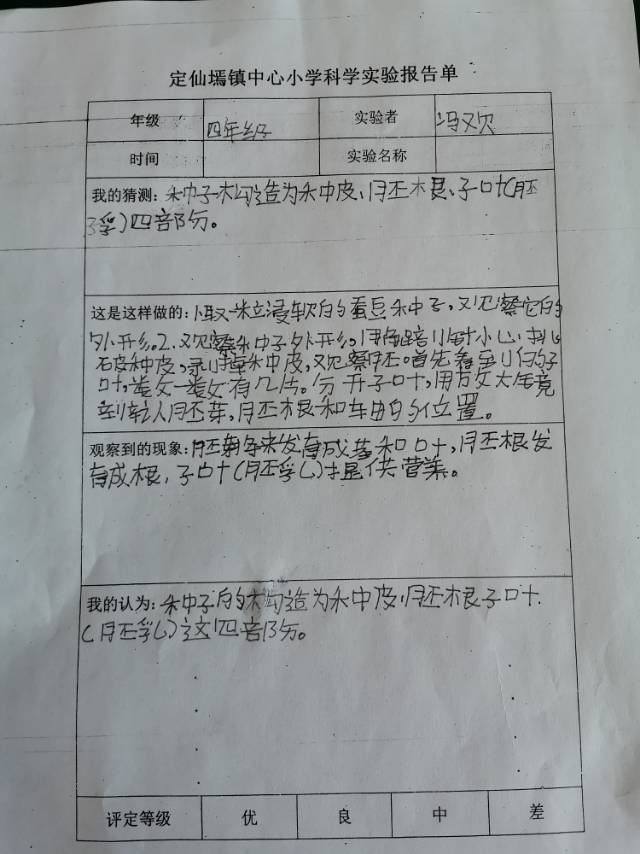 定仙墕镇中心小学科学实验报告单
年级 四年级 实验者 冯欢
时间 实验名称
我的猜测:种子构造为种皮、胚根、子叶(胚
乳)四部分。
这是这样做的:1.取一粒浸软的蚕豆种子,观察它的
外形。2.观察种子外形。用解剖针小心
种皮,观察胚。首先看到的子
叶,数一数有几片。分开子叶,用放大镜
胚芽,胚根和的位置。
观察到的现象:发育成茎和叶,胚根发
育成根,子叶(胚乳)提供营养。
我的认为:种子的构造为种皮,胚根子叶.
(胚乳)这四部分。
评定等级 优 良 中 差